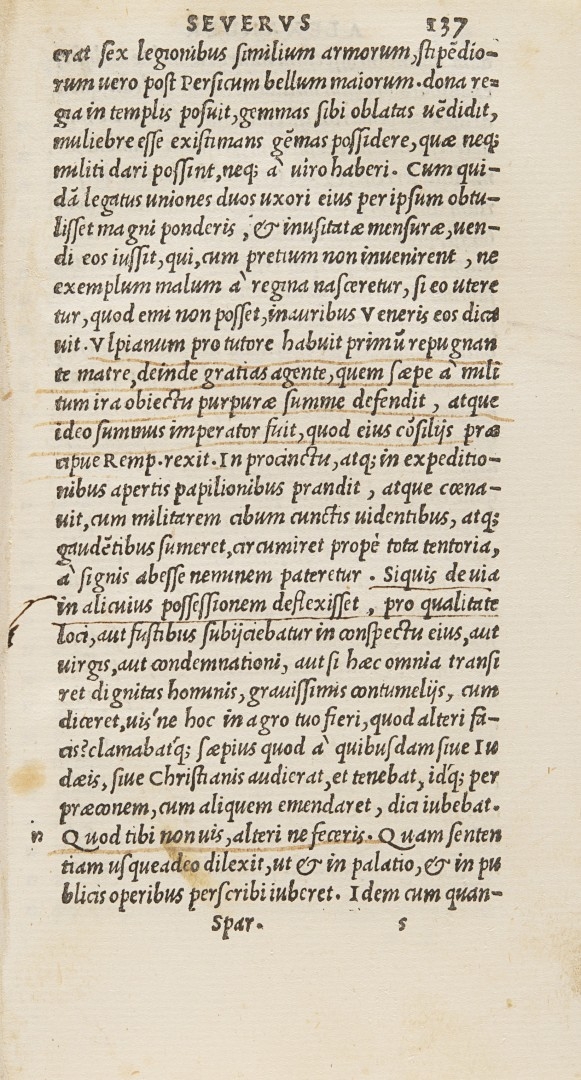 SEVERVS 137
erat sex legionibus similium armorum, stipẽdio-
rum uero post Persicum bellum maiorum. dona re=
gia in templis posuit, gemmas sibi oblatas uẽdidit,
muliebre esse existimans gẽmas possidere, quæ neq;
militi dari possint, neq; à uiro haberi. Cum qui-
dã legatus uniones duos uxori eius per ipsum obtu-
lisset magni ponderis, & inusitatæ mensuræ, uen-
di eos iussit, qui, cum pretium non inuenirent, ne
exemplum malum à regina nasceretur, si eo utere
tur, quod emi non posset, inauribus Veneris eos dica
uit. Vlpianum pro tutore habuit primũ repugnan
te matre, deinde gratias agente, quem sæpe à mili
tum ira obiectu purpuræ summe defendit, atque
ideo summus imperator fuit, quod eius cõsilijs præ
cipue Remp. rexit. In procinctu, atq; in expeditio-
nibus apertis papilionibus prandit, atque cœna-
uit, cum militarem cibum cunctis uidentibus, atq;
gaudẽtibus sumeret, circumiret propè tota tentoria,
à signis abesse neminem pateretur. Siquis de uia
in alicuius possessionem deflexisset, pro qualitate
loci, aut fustibus subijciebatur in conspectu eius, aut
uirgis, aut condemnationi, aut si hæc omnia transi
ret dignitas hominis, grauissimis contumelijs, cum
diceret, uis'ne hoc in agro tuo fieri, quod alteri fa-
cis? clamabat'q; sæpius quod à quibusdam siue Iu
dæis, siue Christianis audierat, et tenebat, id'q; per
præconem, cum aliquem emendaret, dici iubebat.
n Quod tibi non uis, alteri ne feceris. Quam senten
tiam usqueadeo dilexit, ut & in palatio, & in pu
blicis operibus perscribi iuberet. Idem cum quan-
Spar. s